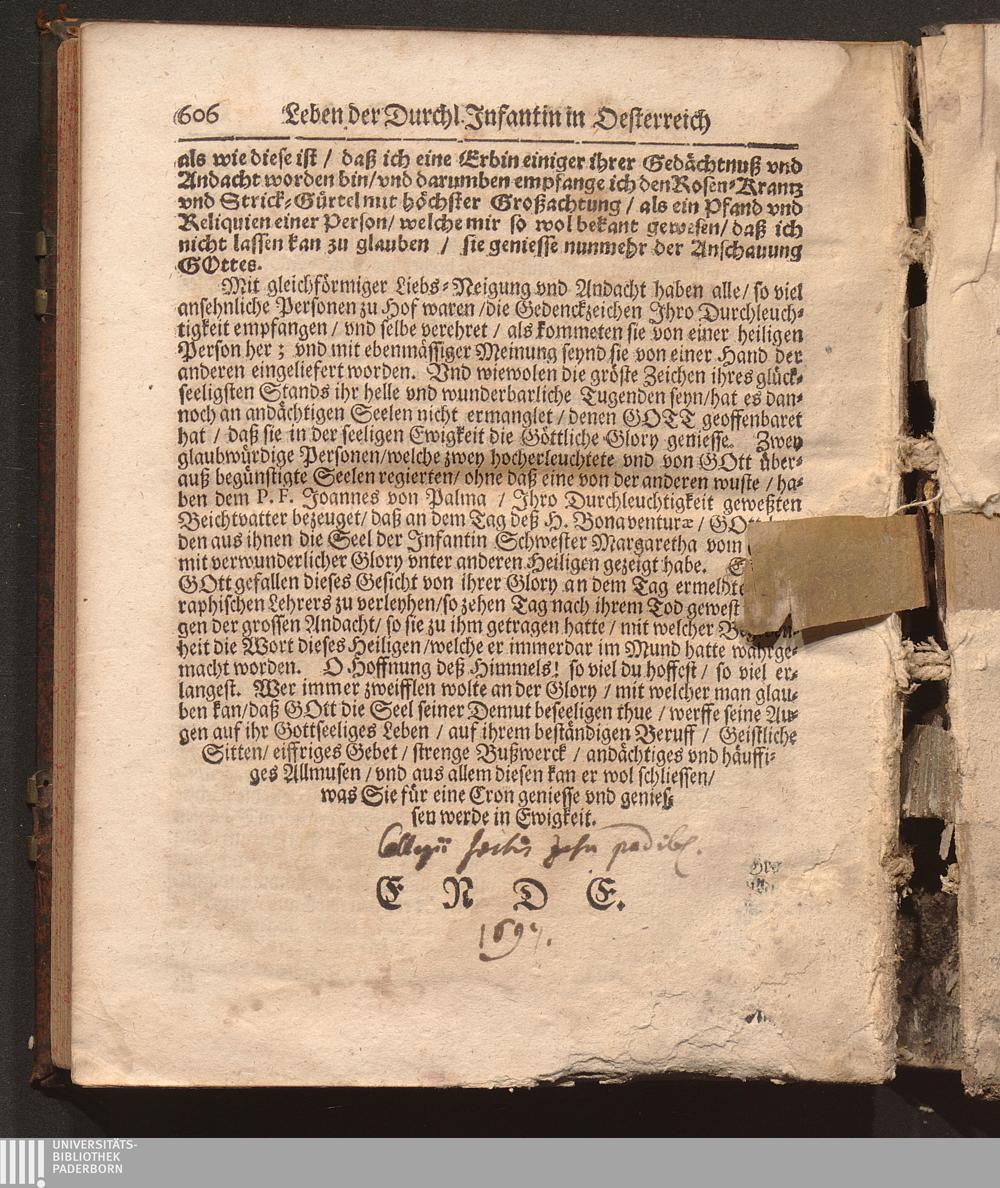 606 Leben der Durchl. Infantin in Oesterreich
als wie diese ist / daß ich eine Erbin einiger ihrer Gedächtnuß vnd
Andacht worden bin/vnd darumben empfange ich den Rosen-Krantz
vnd Strick-Gürtel mit höchster Großachtung / als ein Pfand vnd
Reliquien einer Person/ welche mir so wol bekant gewesen/ daß ich
nicht lassen kan zu glauben / sie geniesse nunmehr der Anschauung
GOttes.
Mit gleichförmiger Liebs-Neigung vnd Andacht haben alle/ so viel
ansehnliche Personen zu Hof waren /die Gedenckzeichen Ihro Durchleuch-
tigkeit empfangen / vnd selbe verehret / als kommeten sie von einer heiligen
Person her ; vnd mit ebenmässiger Meinung seynd sie von einer Hand der
anderen eingeliefert worden. Vnd wiewolen die gröste Zeichen ihres glück-
seeligsten Stands ihr helle vnd wunderbarliche Tugenden seyn/hat es dan-
noch an andächtigen Seelen nicht ermanglet / denen GOTT geoffenbaret
hat / daß sie in der seeligen Ewigkeit die Göttliche Glory geniesse. Zwey
glaubwürdige Personen/welche zwey hocherleuchtete vnd von GOtt über-
auß begünstigte Seelen regierten/ ohne daß eine von der anderen wuste / ha-
ben dem P. F. Joannes von Palma / Ihro Durchleuchtigkeit geweßten
Beichtvatter bezeuget/ daß an dem Tag deß H. Bonaventuræ / GOtt
den aus ihnen die Seel der Infantin Schwester Margaretha vom
mit verwunderlicher Glory vnter anderen Heiligen gezeigt habe.
GOtt gefallen dieses Gesicht von ihrer Glory an dem Tag ermeldte
raphischen Lehrers zu verleyhen/so zehen Tag nach ihrem Tod gewest
gen der grossen Andacht/ so sie zu ihm getragen hatte / mit welcher
heit die Wort dieses Heiligen/welche er immerdar im Mund hatte wahrge-
macht worden. O Hoffnung deß Himmels! so viel du hoffest / so viel er-
langest. Wer immer zweifflen wolte an der Glory / mit welcher man glau-
ben kan/daß GOtt die Seel seiner Demut beseeligen thue / werffe seine Au-
gen auf ihr Gottseeliges Leben / auf ihrem beständigen Beruff / Geistliche
Sitten/ eiffriges Gebet / strenge Bußwerck / andächtiges vnd häuffi-
ges Allmusen / vnd aus allem diesen kan er wol schliessen/
was Sie für eine Cron geniesse vnd genies-
sen werde in Ewigkeit.
E N D E.
UNIVERSITÄTS-
BIBLIOTHEK
PADERBORN